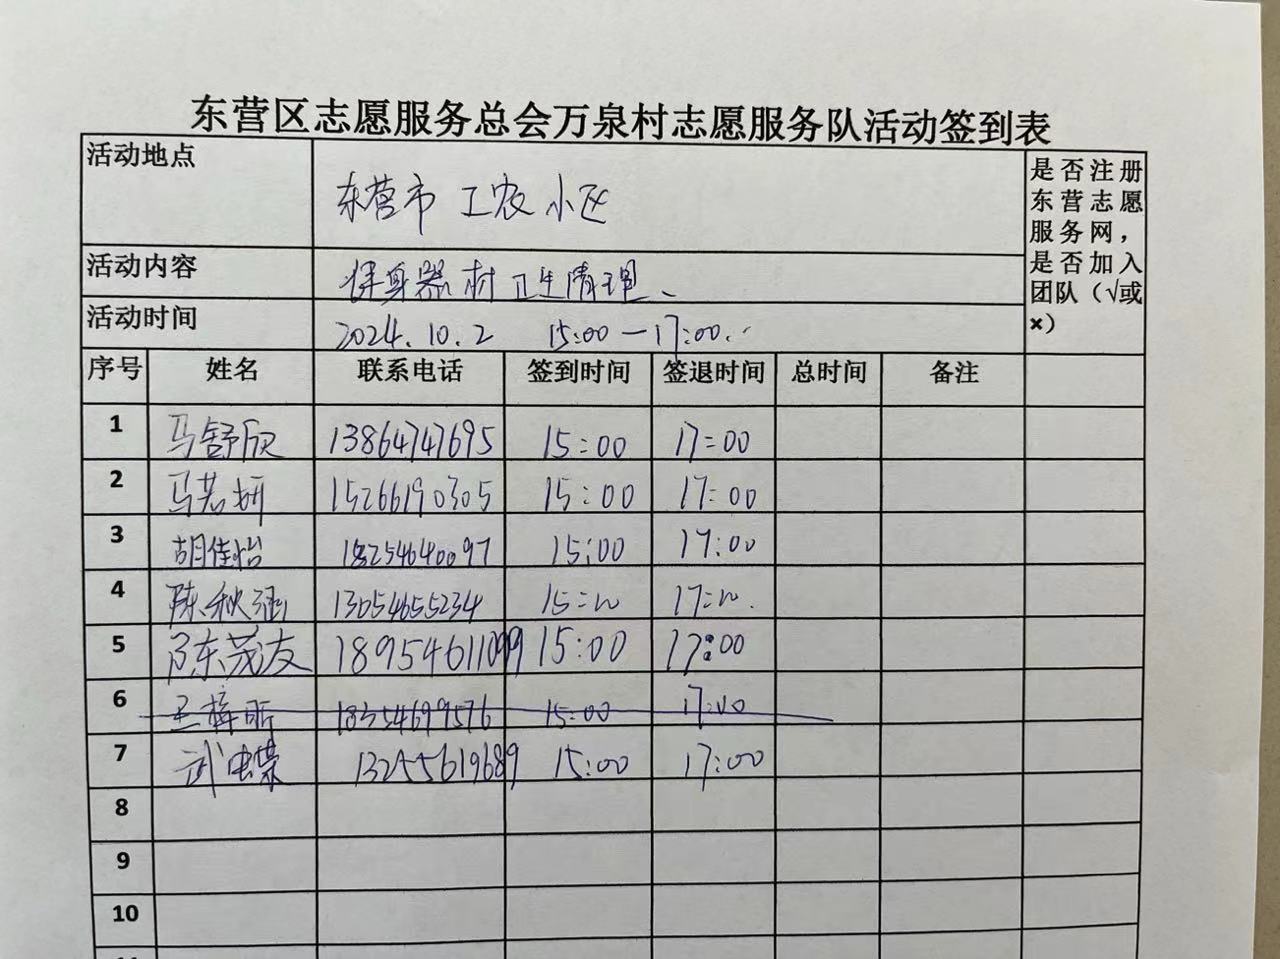 东营区志愿服务总会万泉村志愿服务队活动签到表
活动地点 东营市 工农小区
是否注册东营志愿服务网，是否加入团队（√或×）
活动内容 健身器材卫生清理、
活动时间 2024.10.2 15:00—17:00.
序号 姓名 联系电话 签到时间 签退时间 总时间 备注
1 马舒欣 13864747695 15:00 17:00
2 马若妍 15266190305 15:00 17:00
3 胡佳怡 18254640097 15:00 17:00
4 陈秋涵 13654655234 15:00 17:00.
5 陈茂友 18954611099 15:00 17:00
6 王梓昕 18354699576 15:00 17:00
7 武 13255619689 15:00 17:00
8
9
10